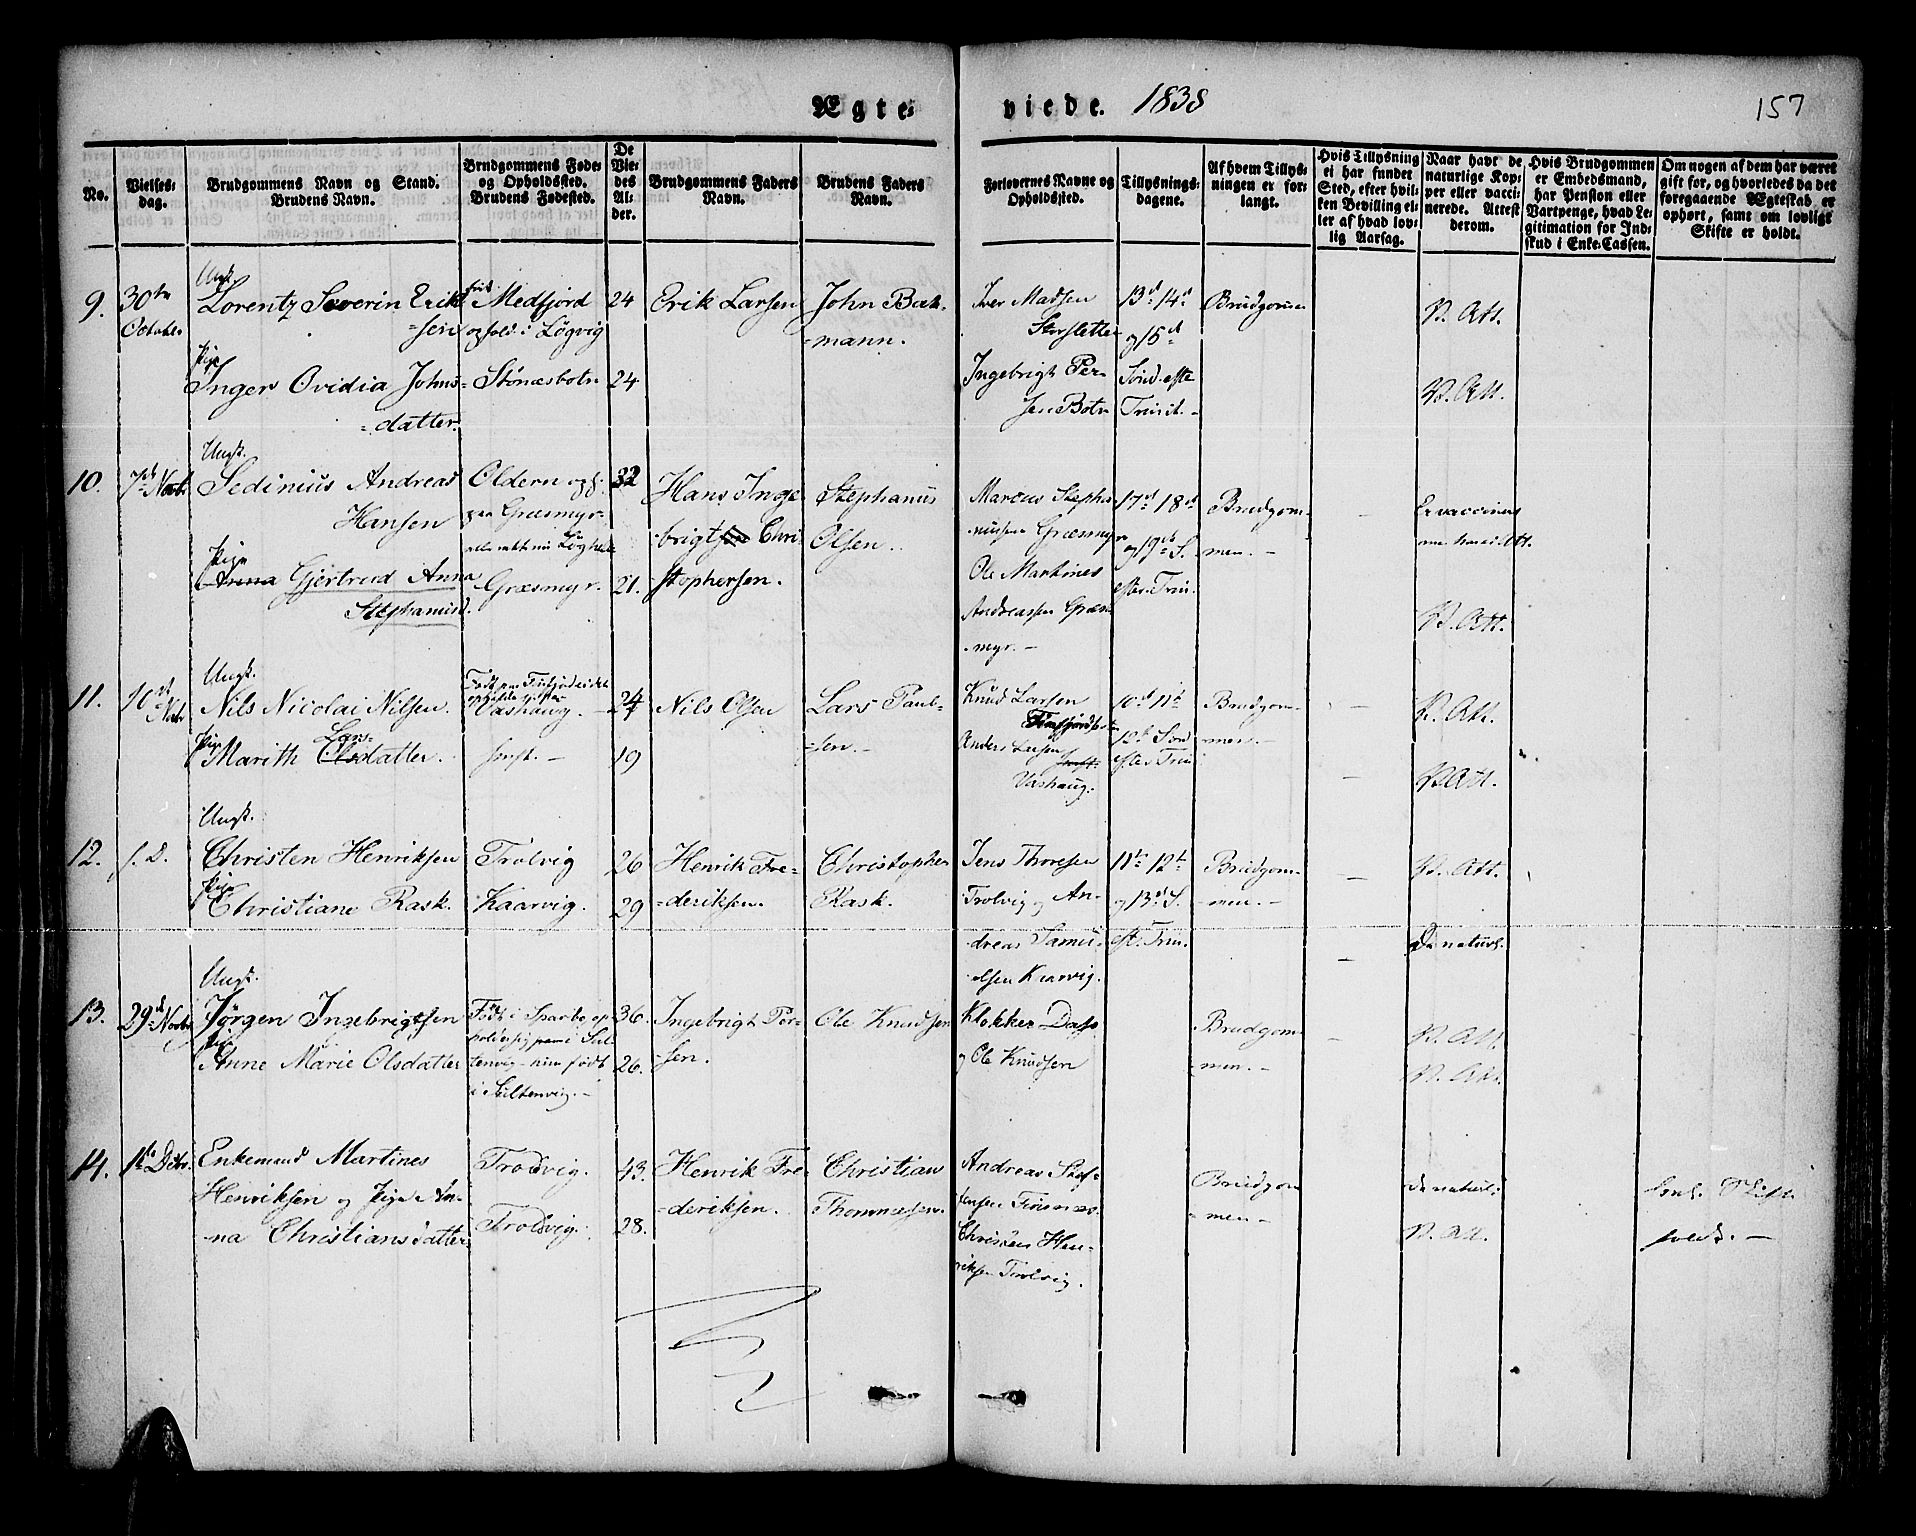 Ægte-
viede. 1838
157
No.
Vielses-
dag.
Brudgommens Navn og Stand.
Brudens Navn.
Brudgommens Føde-
og Opholdssted.
Brudens Fødested.
De
Vie-
des
Al-
der.
Brudgommens Faders
Navn.
Brudens Faders
Navn.
Forlovernes Navne og
Opholdssted.
Tillysnings-
dagene.
Af hvem Tillys-
ningen er for-
langt.
Hvis Tillysning
ei har fundet
Sted, efter hvil-
ken Bevilling el-
ler af hvad lov-
lig Aarsag.
Naar havt de
naturlige Kop-
per eller vacci-
nerede. Attest
derom.
Hvis Brudgommen
er Embedsmand,
har Pension eller
Vartpenge, hvad Le-
gitimation for Ind-
skud i Enke-Cassen.
Om nogen af dem har været
gift før, og hvorledes da det
foregaaende Ægteskab er
ophørt, samt om lovligt
Skifte er holdt.
9.
30te
Octobr.
Ungk.
Lorentz Severin Erik
=sen
Pige
Inger Ovidia Johns=
=datter.
Medfjord
Løgvig
Stønæsbotn
24
24
Erik Larsen
John Bak-
=mann.
Iver Madsen
Storsletten
Ingebrigt Per-
sen Botn
13d 14d
og 15d
Sönd. efte
Trinit. -
Brudgomm
V. Att.
V. Att.
10.
7de Novbr
Ungk.
Sedinius Andreas
Hansen
Pige
Anna Gjertrud Anna
Stephanusd.
Oldern og h.
paa Græsmyr
Græsmyr.
32
21.
Hans Inge
brigtsen Chri-
stophersen.
Stephanus
Olsen.
Marcus Stepha
nussen Græsmyr
Ole Martines
Andreassen Græs
myr. -
17d 18d
og 19d S.
efter Trin.
Brudgom-
men. -
Er vaccineret
V. Att.
11.
10d
Novbr
Ungk.
Nils Nicolai Nilsen.
Pige
Lars-
Marith Olsdatter.
Vashaug. -
smst. -
24
19
Nils Olsen
Lars Paul-
=sen. -
Knud Larsen
Finfjordb
Anders Larsen
smst.
Vashaug.
10d 11te
12te Sönd
efter Trin.
Brudgom-
men. -
V. Att.
V. Att.
12.
s. D.
Ungk.
Christen Henriksen
Pige
Christiane Rask.
Trolvig
Kaarvig.
26
29
Henrik Fre-
=deriksen.
Christopher
Rask.
Jens Thoresen
Trolvig og An-
dreas Samu-
elsen Kaarvig.
11te 12te
og 13d S.
eft. Trin.
Brudgom-
men. -
V. Att.
De naturl.
13.
29d Novbr
Ungk.
Jörgen Ingebrigtsen
Pige
Anne Marie Olsdatter
Født i Sparbo op-
holder sig paa i Sul-
tenvig - hun født
i Sultenvig. -
36.
26.
Ingebrigt Per-
sen.
Ole Knudsen
Klokker Dass
og Ole Knudsen
Brudgom-
men. -
V. Att.
V. Att.
14.
1ste Decbr.
Enkemand Martines
Henriksen og Pige An-
na Christiansdatter
Trolvig.
Trolvig.
43.
28.
Henrik Fre
=deriksen.
Christian
Thomassen.
Andreas Stef-
fensen Finsnæs.
Christen Hen-
riksen Trolvig.
Brudgom
men -
De naturl.
V. Att.
Skift
holdt. -